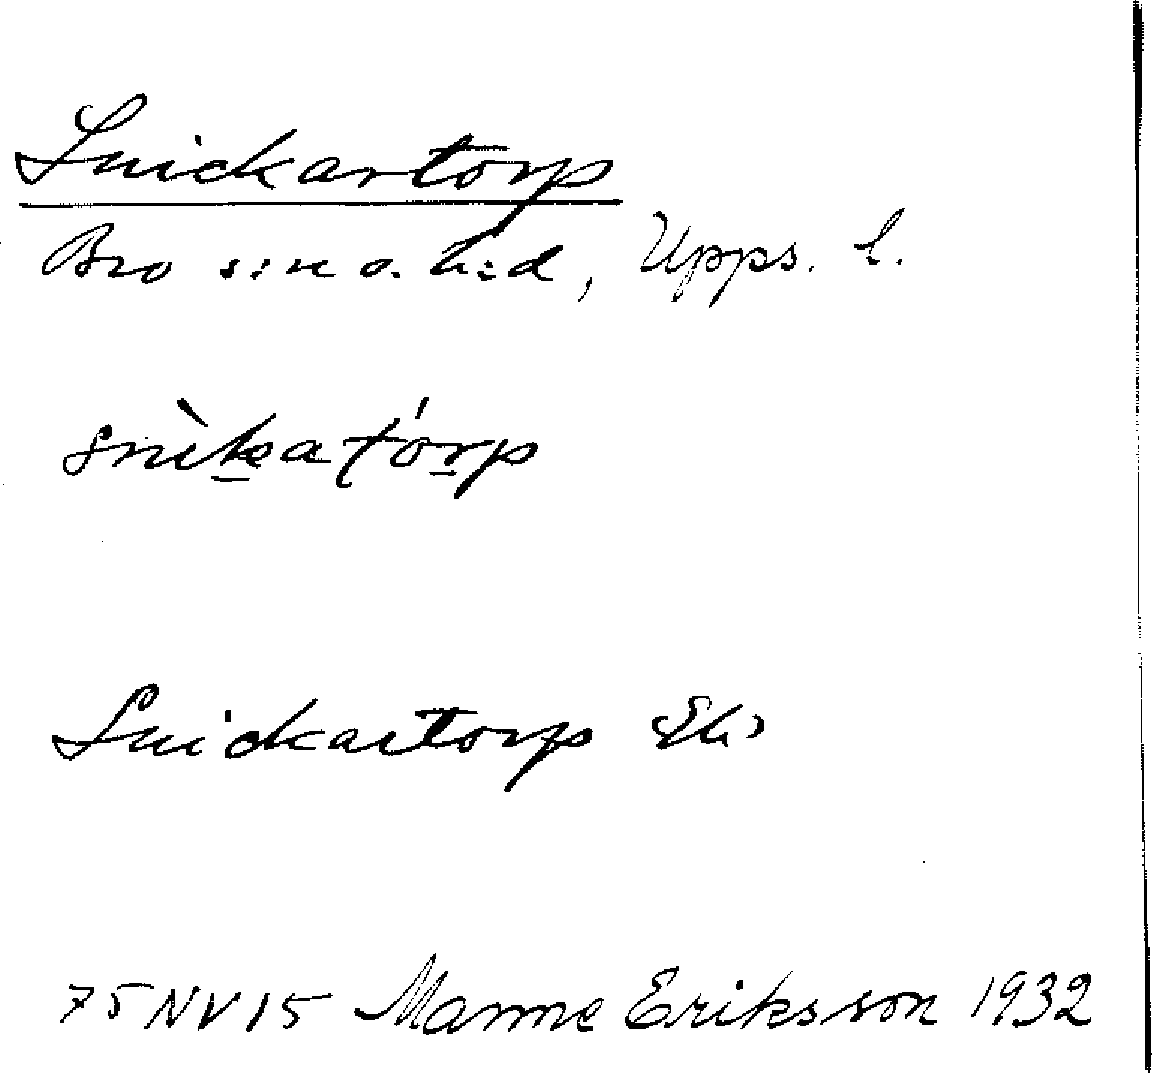 Snickartorp
Bro s:n o. h:d, Upps. l.
snìkatórp
Snickartorp Ek)
75 NV 15 Manne Eriksson 1932